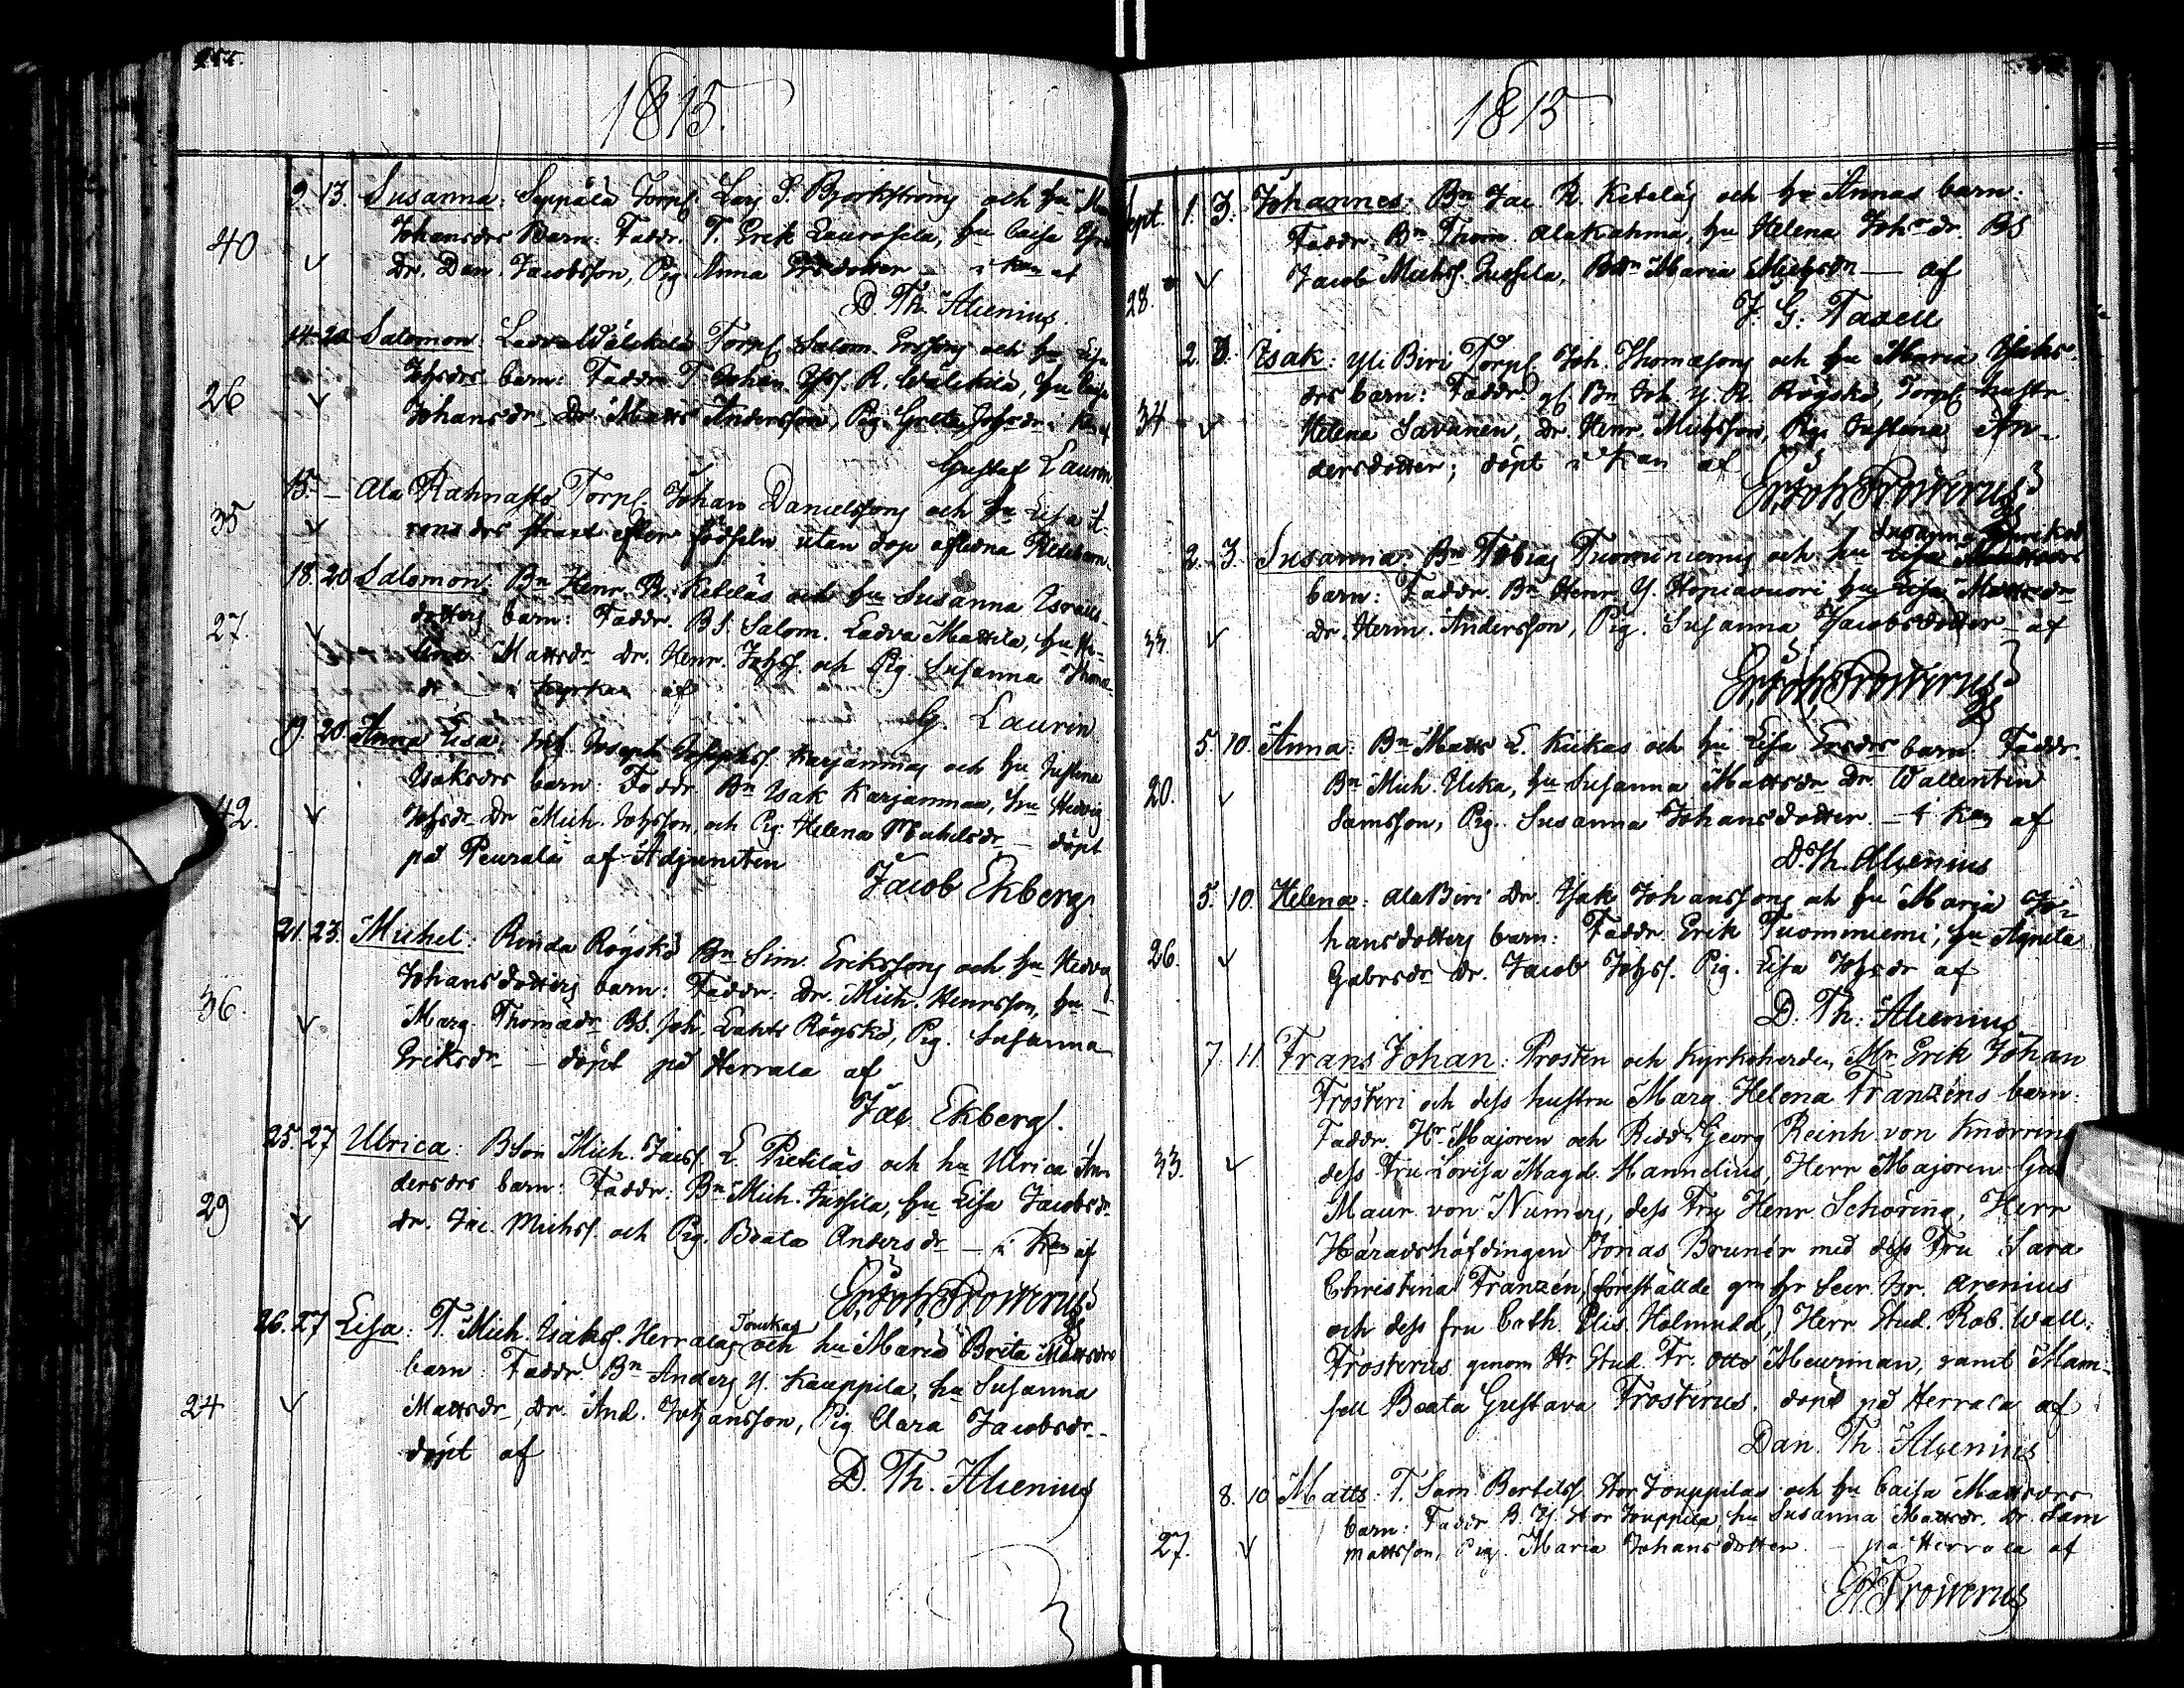 1815.
9. 13. Susanna: Seppälä Torp. Lars S. Björkströms och hu
40 Johansdrs Barn: Faddr. T. Erik Laurosela, hu Caisa
Dr. Dan. Jacobsson, Pig. Anna Ersdotter — i Kan af
D. Th. Alcenius.
14. 20 Salomon: Torp. Salom. Erssons och hu Lisa
26 Johsdrs barn: Faddr. T. Johan R. Wälikila, hu Caisa
Johansdr. Dr. Matts Andersson, Pig. Greta Johsdr. i Kan af
Gustaf Laurin
15. — Ala Rahnasto Torp. Johan Danielssons och hu Lisa
35 strax efter födseln utan dop aflidna
18. 20 Salomon: Bn Henr. R. Keteläs och hu Susanna Israels
27. dotters barn: Faddr. BS. Salom. Ladva Mattila, hu He-
lena Mattsdr Dr. Henr. Johss. och Pig. Susanna Thoma-
dr — i kyrkan af
G. Laurin
19. 20. Anna Lisa: Joseph Josephss. Karjanmaas och hu Justina
Isaksdrs barn: Faddr. Bn Isak Karjanmaa, hu Hedvig
42. Johsdr Dr Mich. Johsson, och Pig. Helena Michelsdr — döpt
på Peurala af Adjuncten
Jacob Ekberg.
21. 23. Michel: Rinda Rögskö Bn Sim. Erikssons och hu Hedvig
Johansdotters barn: Faddr: Dr. Mich. Henrsson, hu
36. Marg. Thomadr BS. Joh. Lahti Rögskö, Pig. Susanna
Eriksdr — döpt på Herrala af
Jac. Ekberg.
25. 27 Ulrica: BSon Mich. Jacss. L. Pietiläs och hu Ulrica An-
dersdrs barn: Faddr: Bn Mich. Jussila, hu Lisa Jacobsdr
29 Dr. Jac. Michss. och Pig. Beata Andersdr — i Kan af
Er. Joh. Frosterus
26. 27 Lisa: T. Mich. Isakss. Herralas och hu Maria Brita Mattsdrs
barn: Faddr. Bn Anders Y. Kauppila, hu Susanna
24 Mattsdr, Dr. And. Johansson, Pig. Clara Jacobsdr —
döpt af
D. Th. Alcenius
1815
Sept. 1. 3. Johannes: Bn Jac. R. Keteläs och hu Annas barn:
Faddr: Bn Thom. Alakahma, hu Helena Johsdr. BS
28. Jacob Michss. Jussila, Maria Michsdr — af
J. G. Taxell
2. 3. Isak: Yli Biri Torp. Joh. Thomassons och hu Maria Isaks-
drs barn: Faddr. gl. Bn Joh. Y. R. Rögskö, Torp. hustr.
34 Helena Savanen, Dr. Henr. Michsson, Pig. Justina An-
dersdotter; döpt i Kan af
Er. Joh. Frosterus
2. 3. Susanna: Bn Tobias Tuominiemis och hu Susanna
barn: Faddr. Bn Henr. Y. Hopiavuori, hu Lisa Mattsdr
33. Dr. Herm. Andersson, Pig. Susanna Jacobsdotter — af
Er. Joh. Frosterus
5. 10. Anna: Bn Matts L. Kiikas och hu Lisa Ersdrs barn. Faddr.
20. Bn Mich. Ucka, hu Susanna Mattsdr Dr. Wallentin
Samsson, Pig. Susanna Johansdotter — i Kan af
D. Th. Alcenius
5. 10. Helena: Ala Biri Dr. Isak Johanssons och hu Maria Jo-
hansdotters barn: Faddr. Erik Tuominiemi, hu Agneta
26. Gabrsdr Dr. Jacob Johss. Pig. Lisa Johsdr af
D. Th. Alcenius
7. 11. Frans Johan: Prosten och Kyrkoherden Mr Erik Johan
Frosteri och dess hustru Marg. Helena Franzéns barn:
Faddr. Hr Majoren och Ridd. Georg Reinh. von Knorring
33. dess Fru Lovisa Magd. Hannelius, Herr Majoren
Maur. von Numers, dess Fru Henr. Schöring, Herr
Häradshöfdingen Jonas Brunér med dess Fru Sara
Christina Franzén, (föreställde gm Hr Secr. Br. Arenius
och dess fru Cath. Elis. Holmudd,) Herr Stud. Rob. Wall.
Frosterus genom Hr Stud. Fr. Otto Meurman, samt Mam-
sell Beata Gustava Frosterus. döpt på Herrala af
Dan. Th. Alcenius
8. 10 Matts: T. Sam. Bertilss. Stor Jouppilas och hu Caisa Mattsdrs
barn: Faddr. B. Y. Stor Jouppila, hu Susanna Mattsdr. Dr. Sam
27. Mattsson, Pig. Maria Johansdotter — på Herrala af
Frosterus